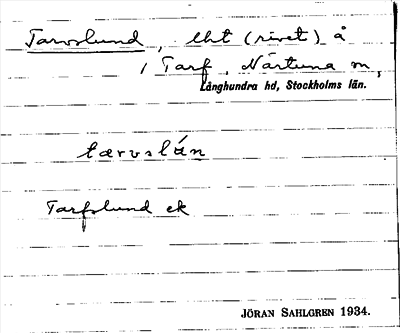 Tarvslund, lht (rivet) å
1 Tarf, Närtuna sn,
Långhundra hd, Stockholms län.
tærvslán
Tarfslund ek
JÖRAN SAHLGREN 1934.